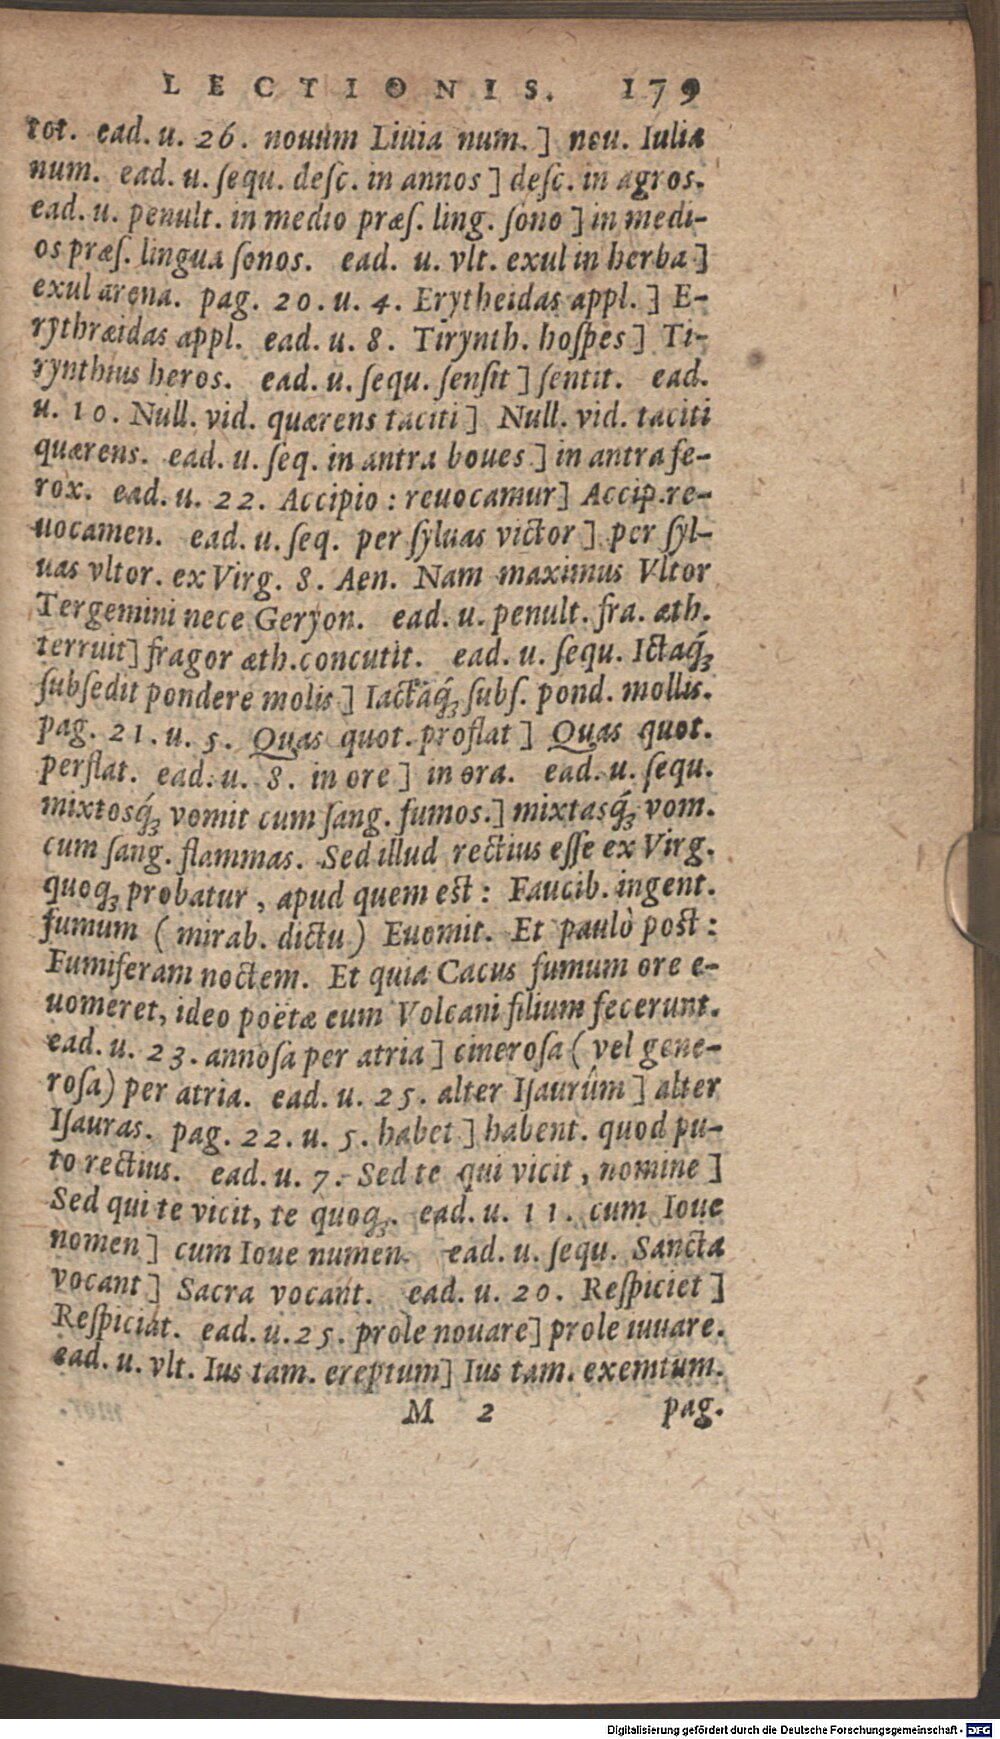 LECTIONIS. 179
tot. ead. u. 26. nouum Liuia num.] neu. Iulia
num. ead. u. ſequ. deſc. in annos] deſc. in agros.
ead. u. penult. in medio præſ. ling. ſono] in medi-
os præſ. lingua ſonos. ead. u. vlt. exul in herba]
exul arena. pag. 20. u. 4. Erytheidas appl.] E-
rythræidas appl. ead. u. 8. Tirynth. hoſpes] Ti-
rynthius heros. ead. u. ſequ. ſenſit] ſentit. ead.
u. 10. Null. vid. quærens taciti] Null. vid. taciti
quærens. ead. u. ſeq. in antra boues] in antra fe-
rox. ead. u. 22. Accipio: reuocamur] Accip. re-
uocamen. ead. u. ſeq. per ſyluas victor] per ſyl-
uas vltor. ex Virg. 8. Aen. Nam maximus Vltor
Tergemini nece Geryon. ead. u. penult. fra. æth.
terruit] fragor æth. concutit. ead. u. ſequ. Ictaq́ꝫ
ſubſedit pondere molis] Iactaq́ꝫ ſubſ. pond. mollis.
pag. 21. u. 5. Quas quot. proflat] Quas quot.
perflat. ead. u. 8. in ore] in ora. ead. u. ſequ.
mixtosq́ꝫ vomit cum ſang. fumos.] mixtasq́ꝫ vom.
cum ſang. flammas. Sed illud rectius eſſe ex Virg.
quoqꝫ probatur, apud quem est: Faucib. ingent.
fumum (mirab. dictu) Euomit. Et paulò post:
Fumiferam noctem. Et quia Cacus fumum ore e-
uomeret, ideo poëtæ eum Volcani filium fecerunt.
ead. u. 23. annoſa per atria] cineroſa (vel gene-
roſa) per atria. ead. u. 25. alter Iſaurûm] alter
Iſauras. pag. 22. u. 5. habet] habent. quod pu-
to rectius. ead. u. 7. Sed te qui vicit, nomine]
Sed qui te vicit, te quoqꝫ. ead. u. 11. cum Ioue
nomen] cum Ioue numen. ead. u. ſequ. Sancta
vocant] Sacra vocant. ead. u. 20. Reſpiciet]
Reſpiciat. ead. u. 25. prole nouare] prole iuuare.
ead. u. vlt. Ius tam. ereptum] Ius tam. exemtum.
M 2 pag.
Digitalisierung gefördert durch die Deutsche Forschungsgemeinschaft - DFG